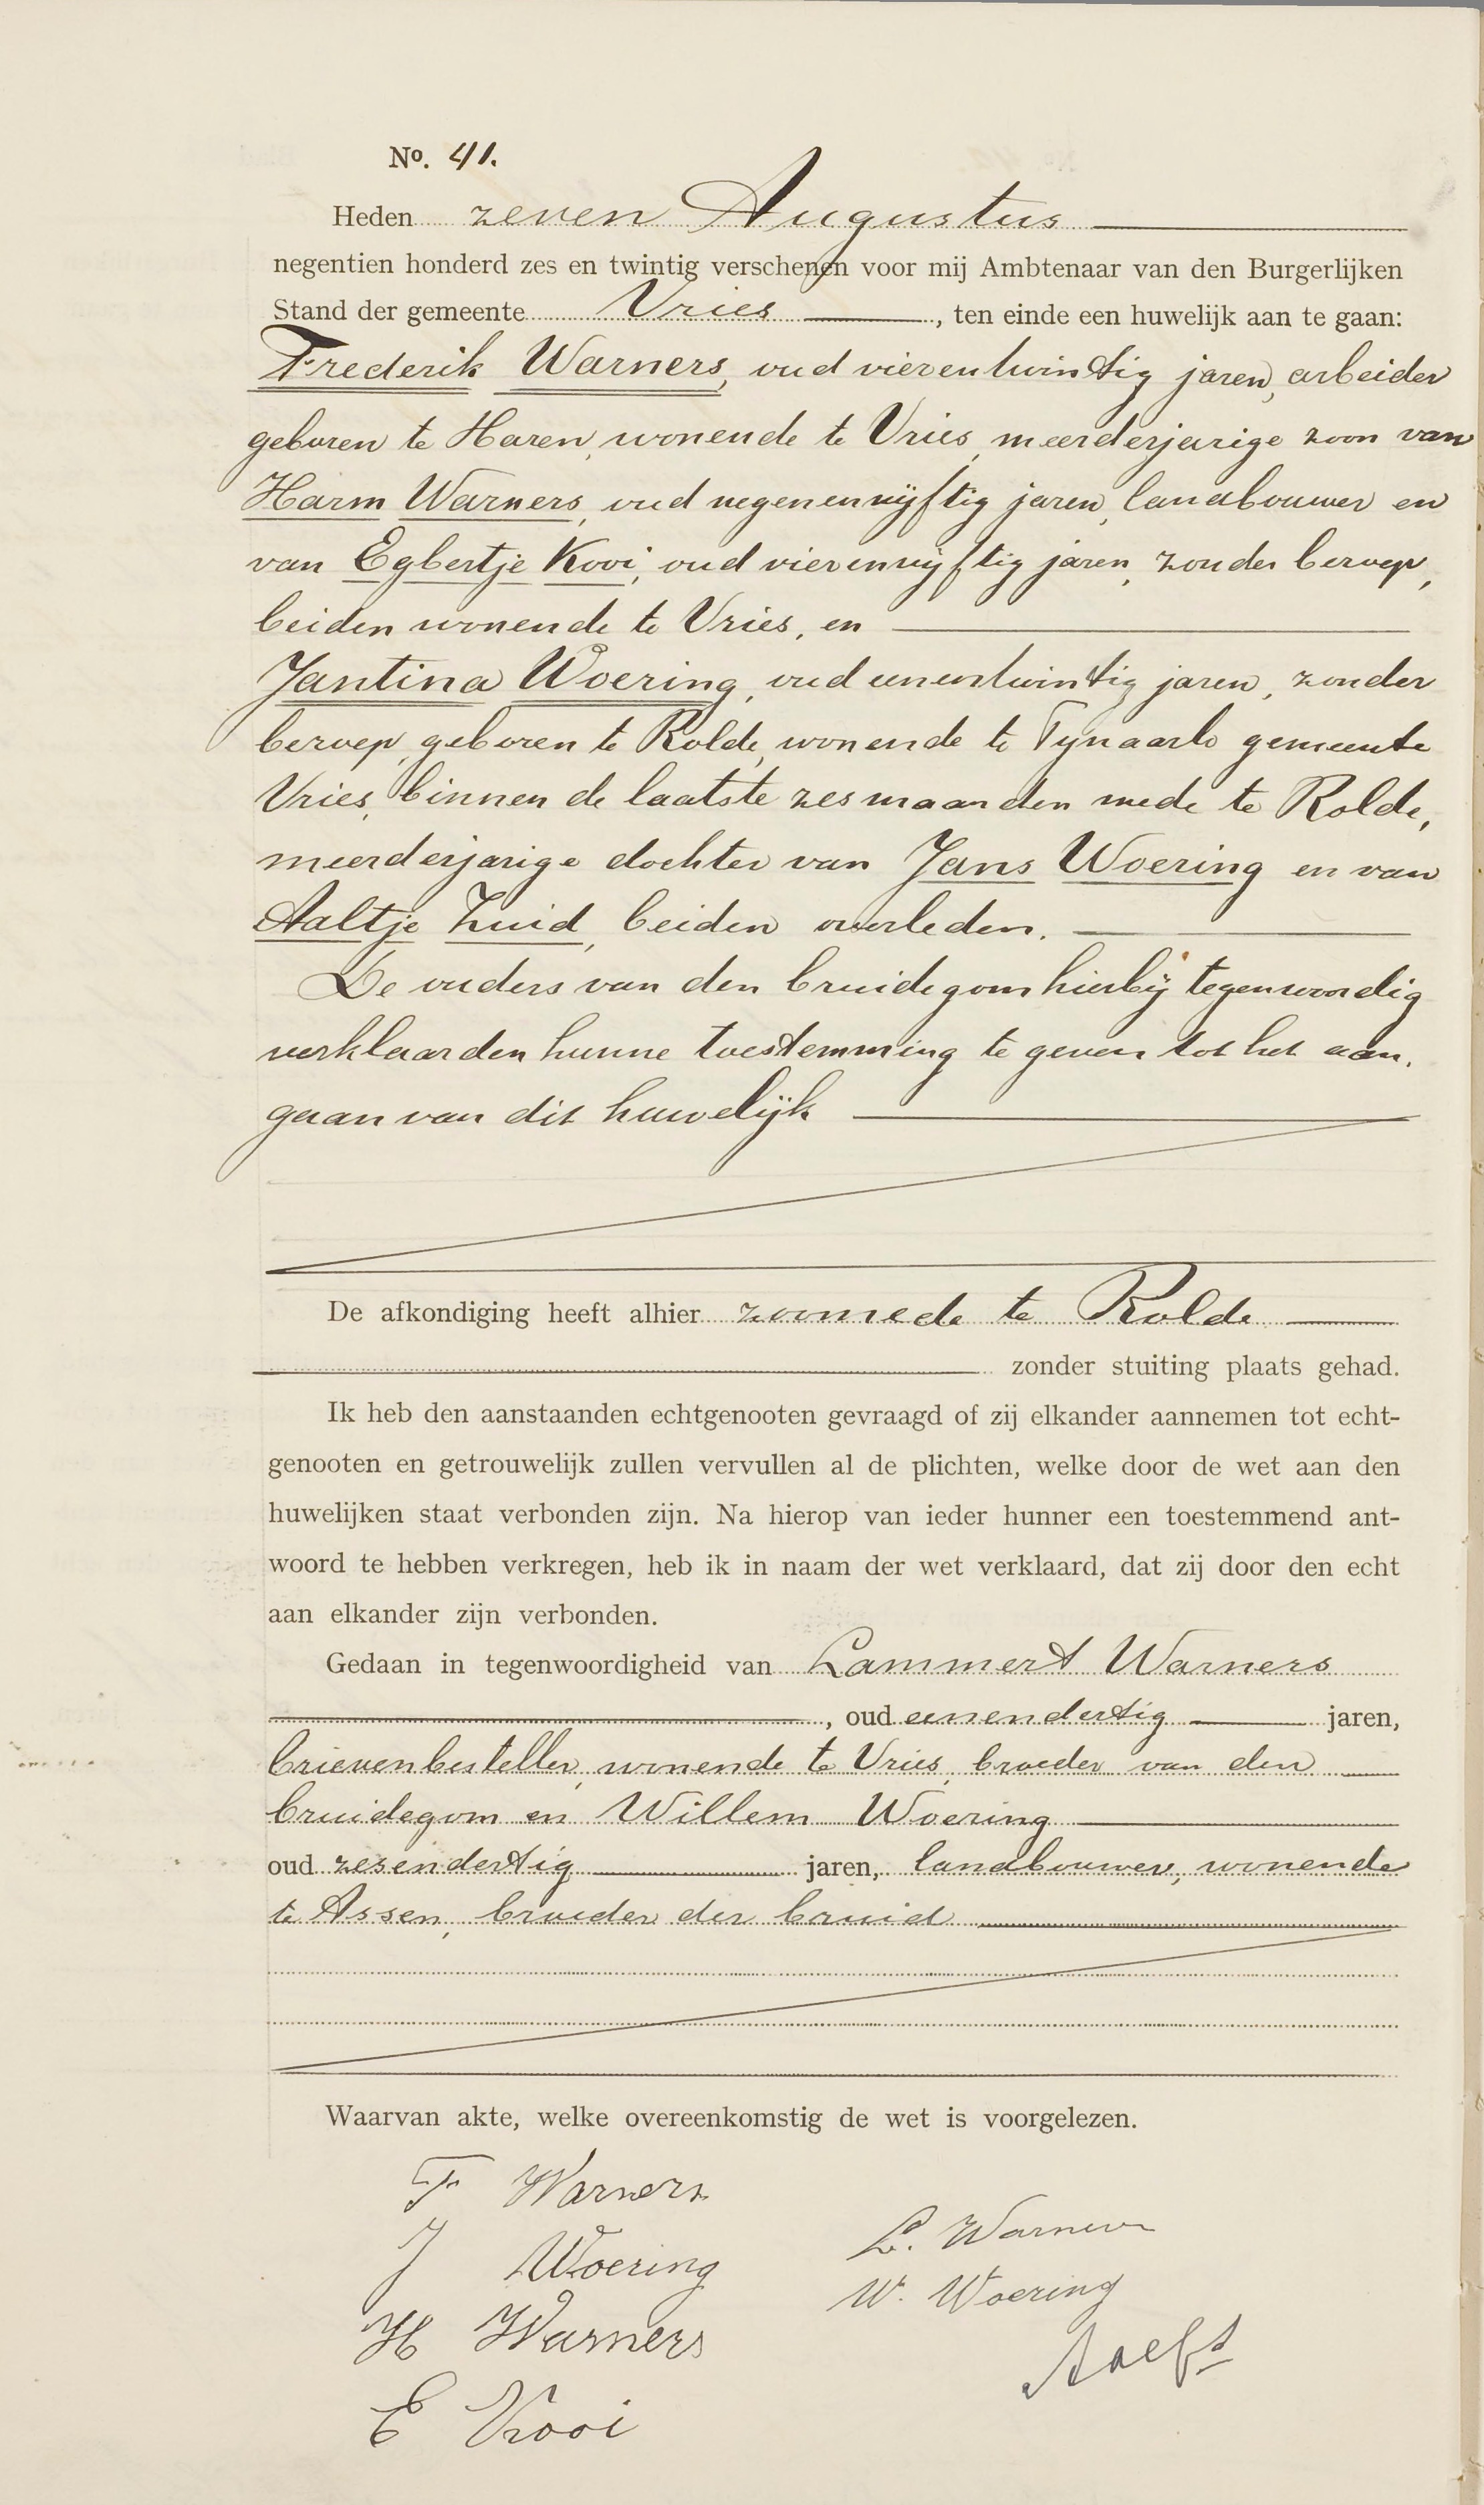 No. 41.
Heden zeven Augustus
negentien honderd zes en twintig verschenen voor mij Ambtenaar van den Burgerlijken
Stand der gemeente Vries, ten einde een huwelijk aan te gaan:
Frederik Warners, oud vierentwintig jaren, arbeider
geboren te Haren, wonende te Vries, meerderjarige zoon van
Harm Warners, oud negenenvijftig jaren, landbouwer en
van Egbertje Kooi, oud vierenvijftig jaren, zonder beroep,
beiden wonende te Vries, en
Jantina Woering, oud eenentwintig jaren, zonder
beroep, geboren te Rolde, wonende te Tynaarlo gemeente
Vries, binnen de laatste zes maanden mede te Rolde,
meerderjarige dochter van Jans Woering en van
Aaltje Zuid, beiden overleden.
De ouders van den bruidegom hierbij tegenwoordig
verklaarden hunne toestemming te geven tot het aan.
gaan van dit huwelijk
De afkondiging heeft alhier zoomede te Rolde
zonder stuiting plaats gehad.
Ik heb den aanstaanden echtgenooten gevraagd of zij elkander aannemen tot echt-
genooten en getrouwelijk zullen vervullen al de plichten, welke door de wet aan den
huwelijken staat verbonden zijn. Na hierop van ieder hunner een toestemmend ant-
woord te hebben verkregen, heb ik in naam der wet verklaard, dat zij door den echt
aan elkander zijn verbonden.
Gedaan in tegenwoordigheid van Lammert Warners
, oud eenendertig jaren,
brievenbesteller, wonende te Vries, broeder van den
bruidegom en Willem Woering
oud zesendertig jaren, landbouwer, wonende
te Assen, broeder der bruid
Waarvan akte, welke overeenkomstig de wet is voorgelezen.
F Warners
J Woering
H Warners
E Kooi
L. Warners
W. Woering